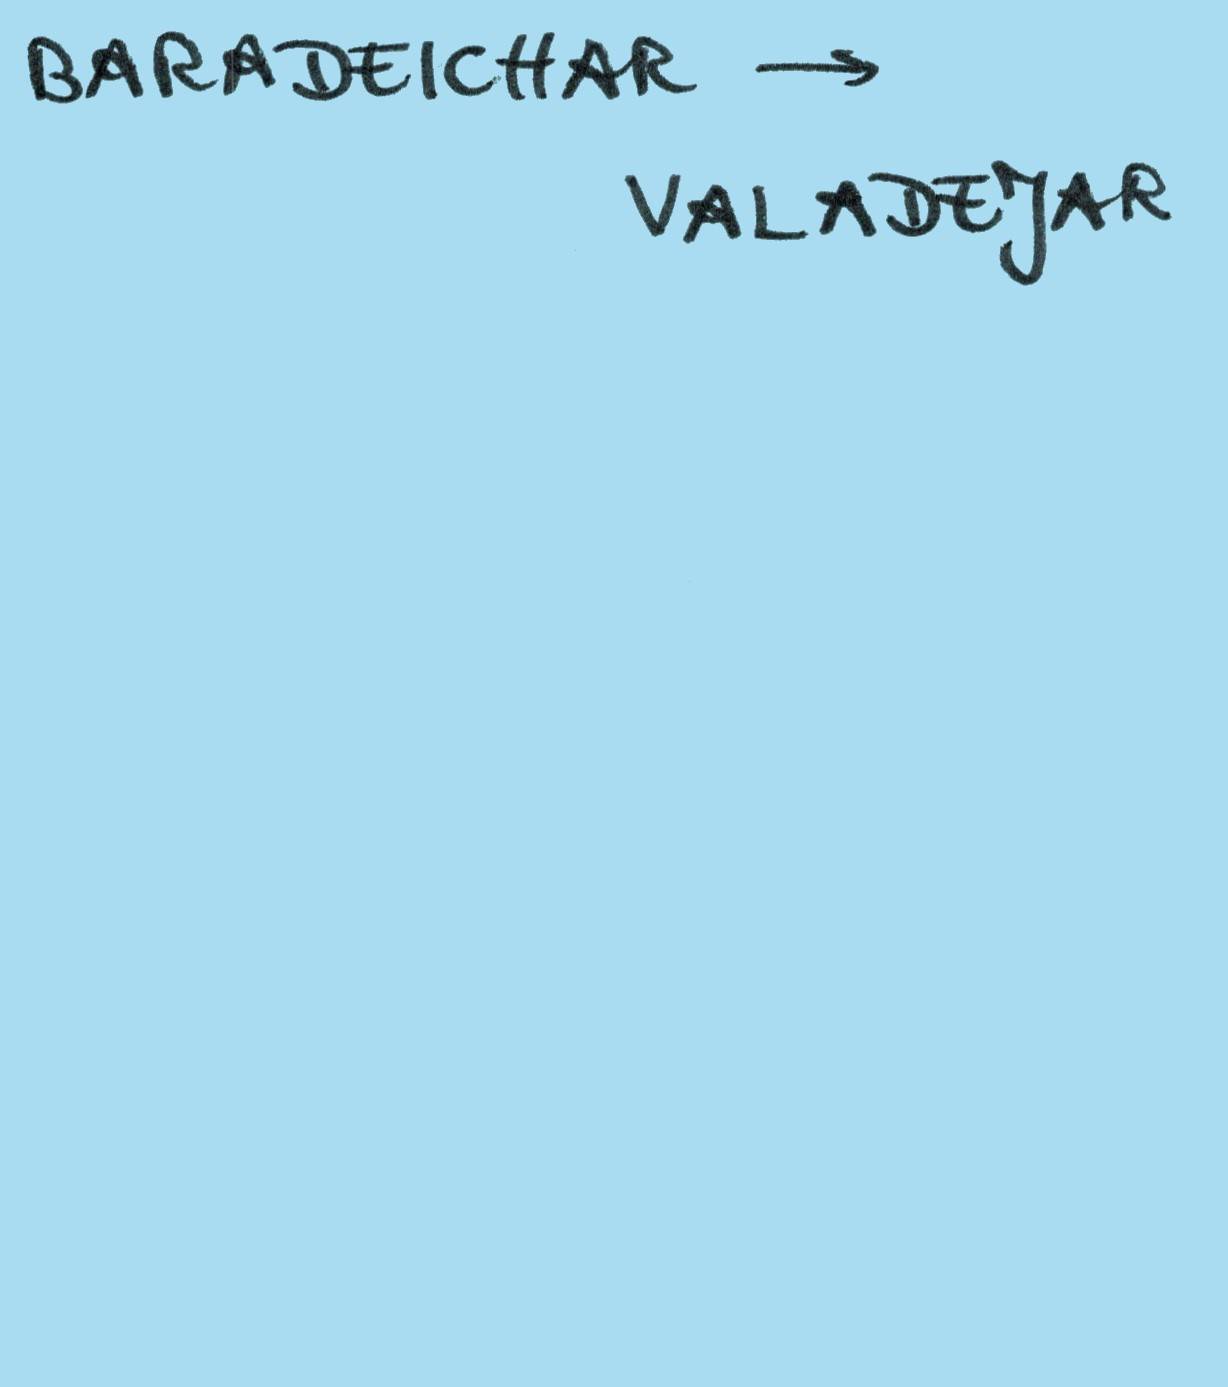 BARADEICHAR →
VALADEJAR